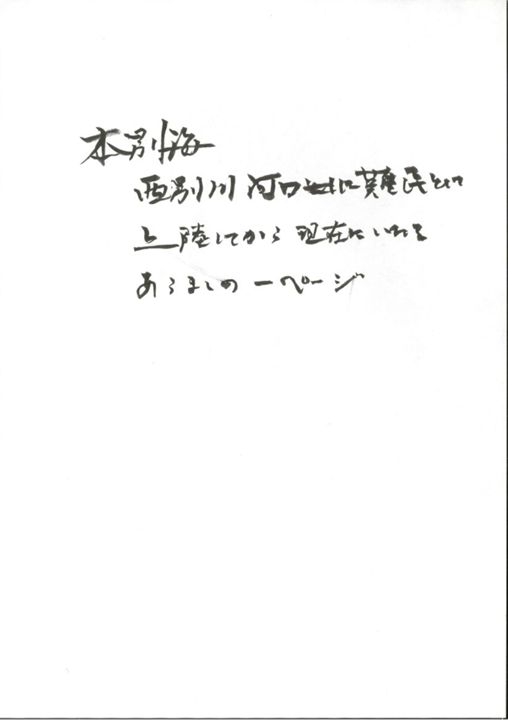 本別海
西別川河口に難民として
上陸してから現在にいたる
あらましの一ページ